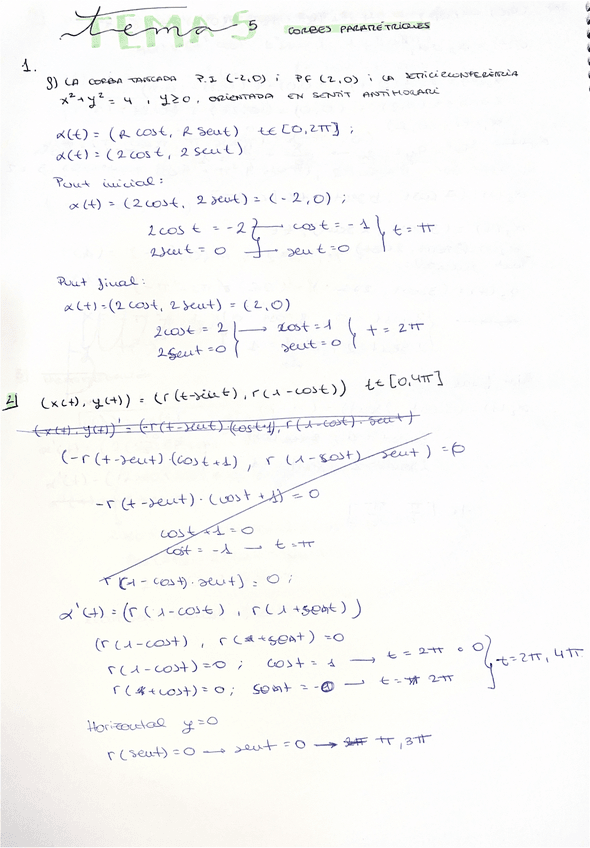 TEMA 5
tema 5 CORBES PARAMÈTRIQUES
1.
g) LA CORBA TANCADA P.I (-2,0) i PF (2,0) i LA SEMICIRCONFERÈNCIA
x² + y² = 4 , y ≥ 0, ORIENTADA EN SENTIT ANTIHORARI
α(t) = (R cost, R sent) t∈[0,2π] ;
α(t) = (2cost, 2sent)
Punt inicial:
α(t) = (2cost, 2sent) = (-2,0) ;
2cost = -2 → cost = -1 } t = π
2sent = 0 → sent = 0
Punt final:
α(t) = (2cost, 2sent) = (2,0)
2cost = 2 → cost = 1 } t = 2π
2sent = 0 sent = 0
2 (x(t), y(t)) = (r(t-sint), r(1-cost)) t∈[0,4π]
(x(t), y(t))' = (-r(t-sent)(cost+1), r(1-cost)·sent)
(-r(t-sent)(cost+1), r(1-cost) sent) = 0
-r(t-sent)·(cost+1) = 0
cost+1 = 0
cost = -1 → t = π
r(1-cost)·sent) = 0 ;
α'(t) = (r(1-cost), r(1+sent))
(r(1-cost), r(+sent) = 0
r(1-cost) = 0 ; cost = 1 → t = 2π o 0 } t = 2π, 4π
r(+cost) = 0 ; sent = 0 → t = 2π
Horizontal y=0
r(sent) = 0 → sent = 0 → π, 3π